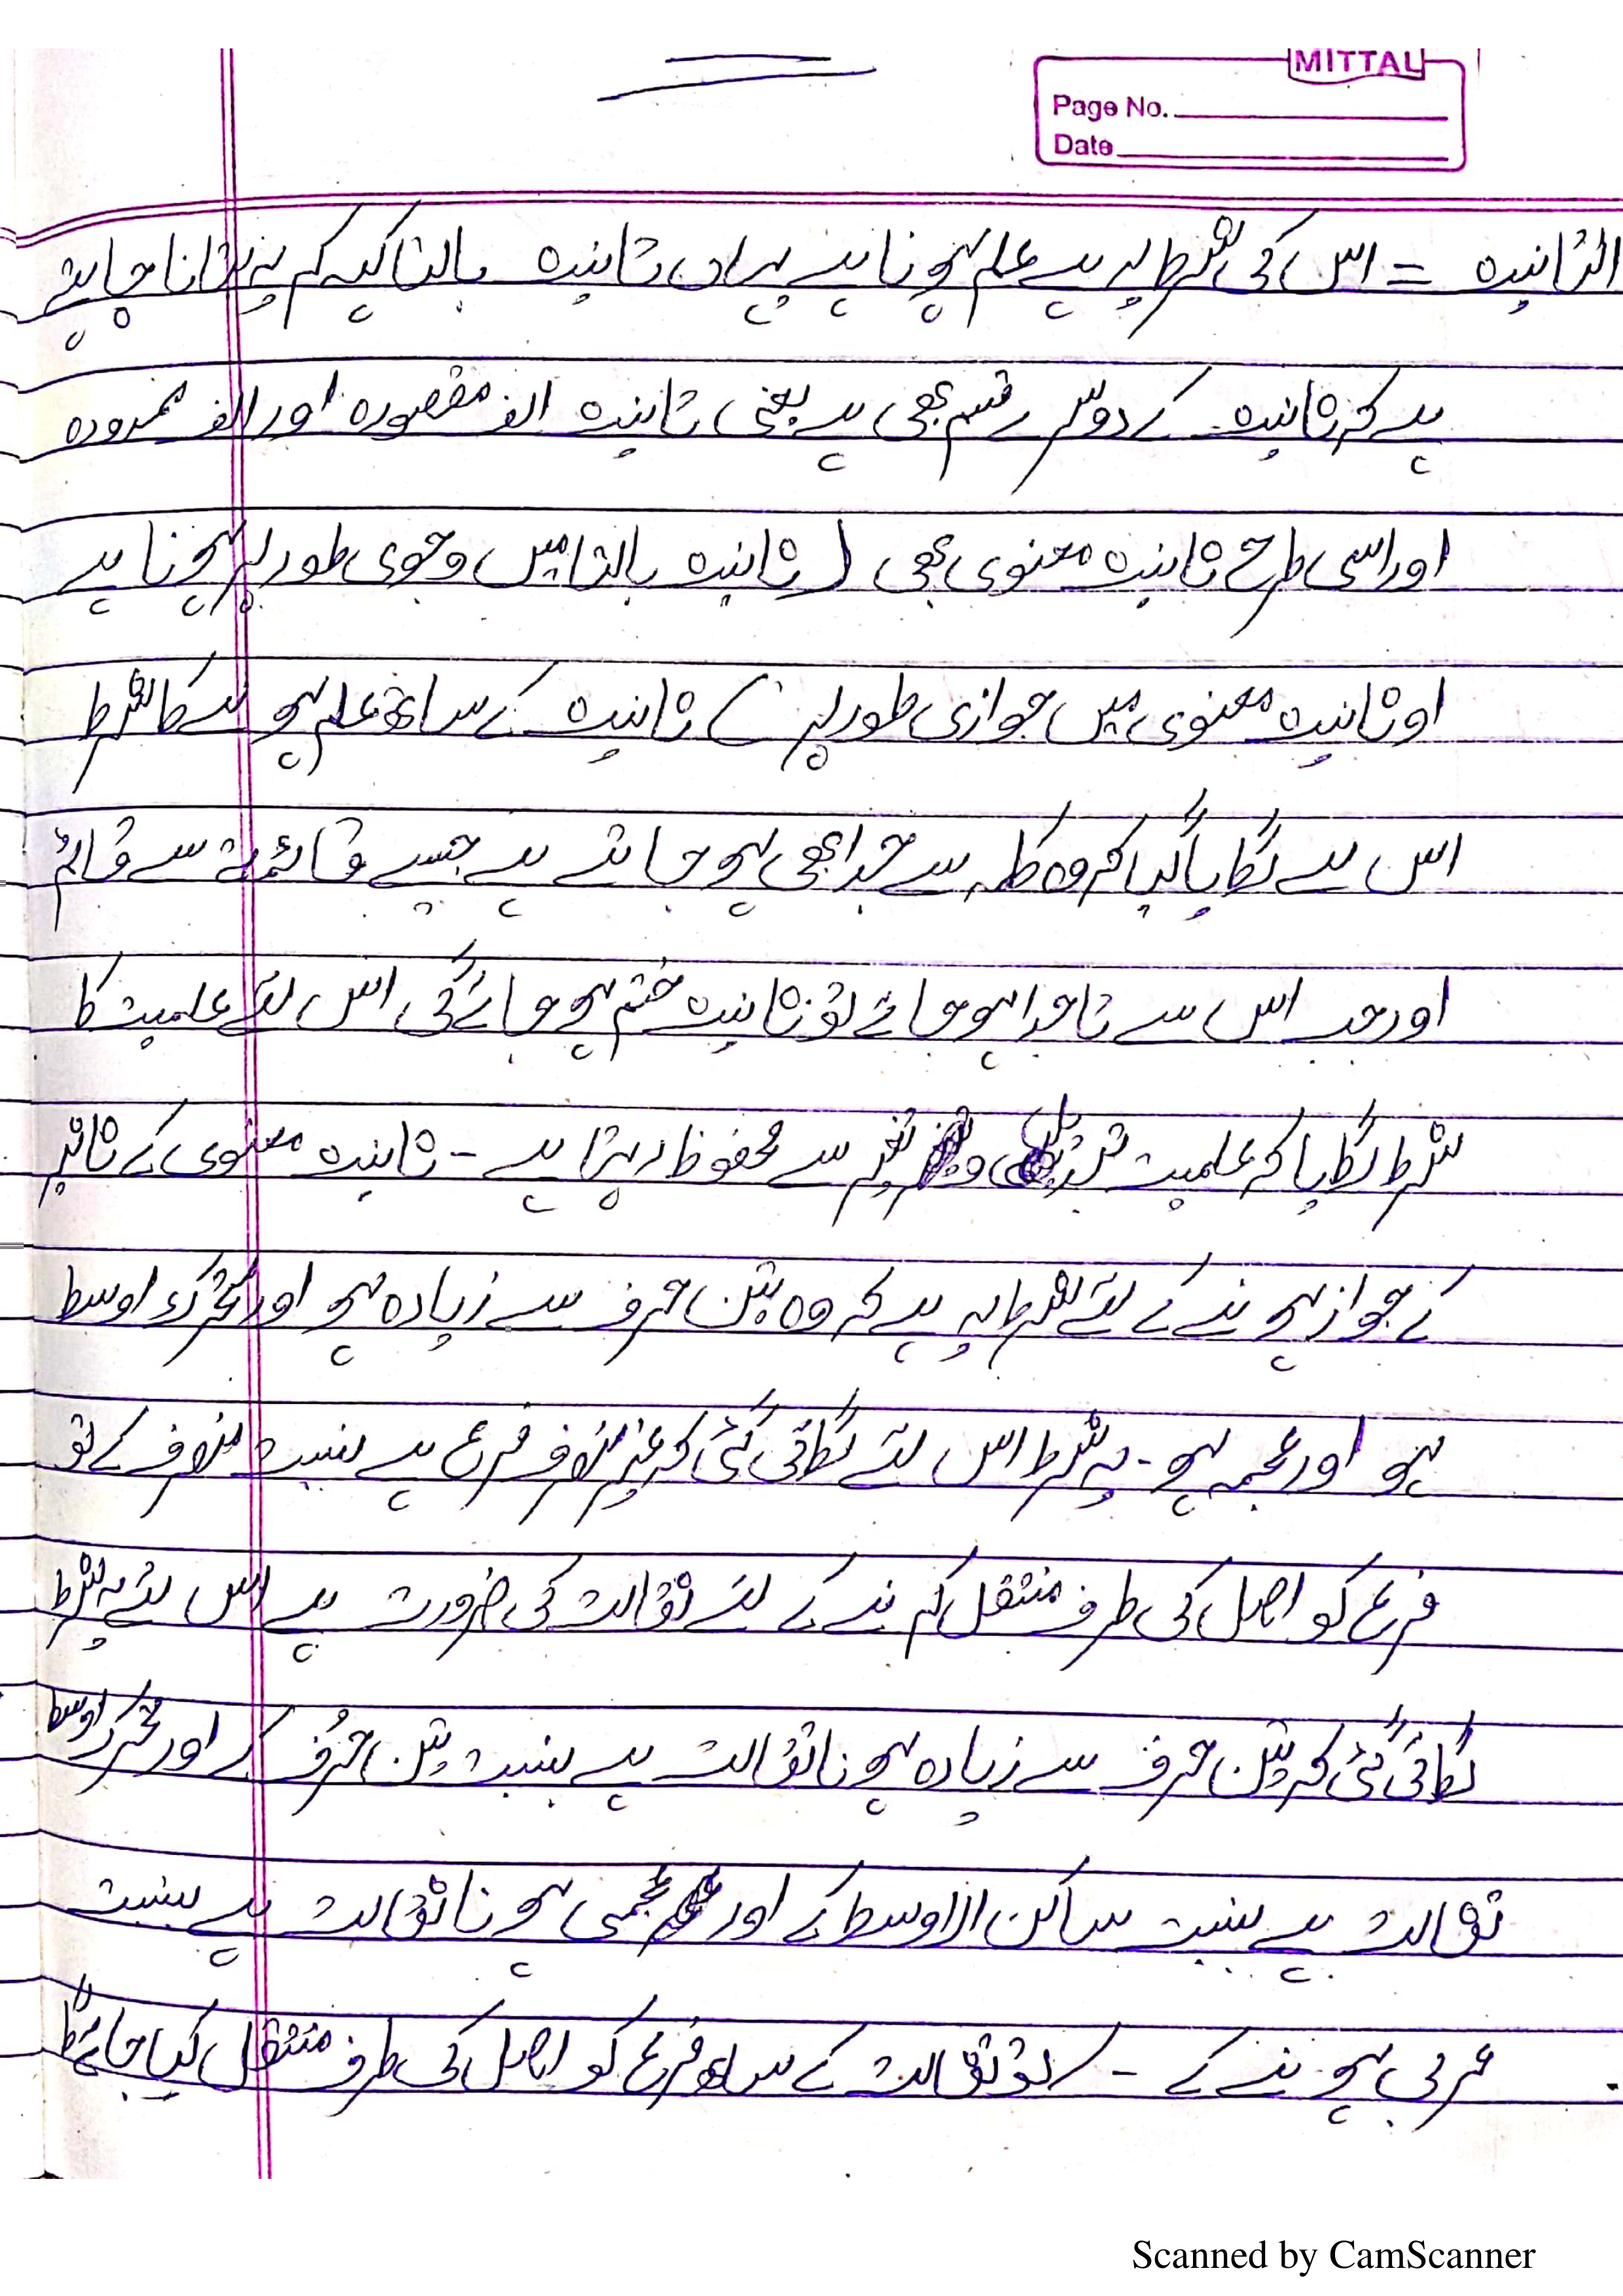 MITTAL
Page No.
Date
التانیث = اس کی شرط یہ ہے علم ہونا ہے یہاں تانیث بالتا کہہ کر یہ بتانا چاہتے
ہے کہ تانیث کے دوسرے قسم بھی ہے یعنی تانیث الف مقصورہ اور الف ممدودہ
اور اسی طرح تانیث معنوی بھی ( تانیث بالتا میں وجوبی طور پر ہونا ہے
او تانیث معنوی میں جوازی طور پر ) تانیث کے ساتھ علم ہونے کا شرط
اس لے لگایا گیا کہ وہ کلمہ سے جدا بھی ہو جاتے ہے جیسے قائمۃ سے قائم
اور جب اس سے تا جدا ہو جائے تو تانیث ختم ہو جائے گی اس لئے علمیت کا
شرط لگایا کہ علمیت تبدیلی و تغیر سے محفوظ رہتا ہے - تانیث معنوی کے تاثیر
کے جواز ہونے کے لئے شرط یہ ہے کہ وہ تین حرف سے زیادہ ہو اور متحرک اوسط
ہو اور عجمہ ہو - یہ شرط اس لئے لگائی گئی کہ غیر منصرف فرع ہے بنسبت منصرف کے تو
فرع کو اصل کی طرف منتقل کرنے کے لئے ثقالت کی ضرورت ہے اس لئے یہ شرط
لگائی گئی کہ تین حرف سے زیادہ ہونا ثقالت ہے بنسبت تین حرف کے اور متحرک اوسط
ثقالت ہے بنسبت ساکن الاوسط کے اور عجمی ہونا ثقالت ہے بنسبت
عربی ہونے کے - تو ثقالت کے ساتھ فرع کو اصل کی طرف منتقل کیا جائے گا
Scanned by CamScanner